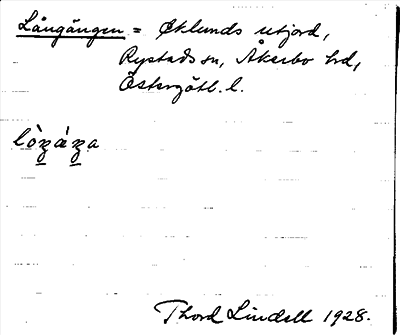 Långängen = Eklunds utjord,
Rystads sn, Åkerbo hd,
Östergötl. l.
Thord Lindell 1928.